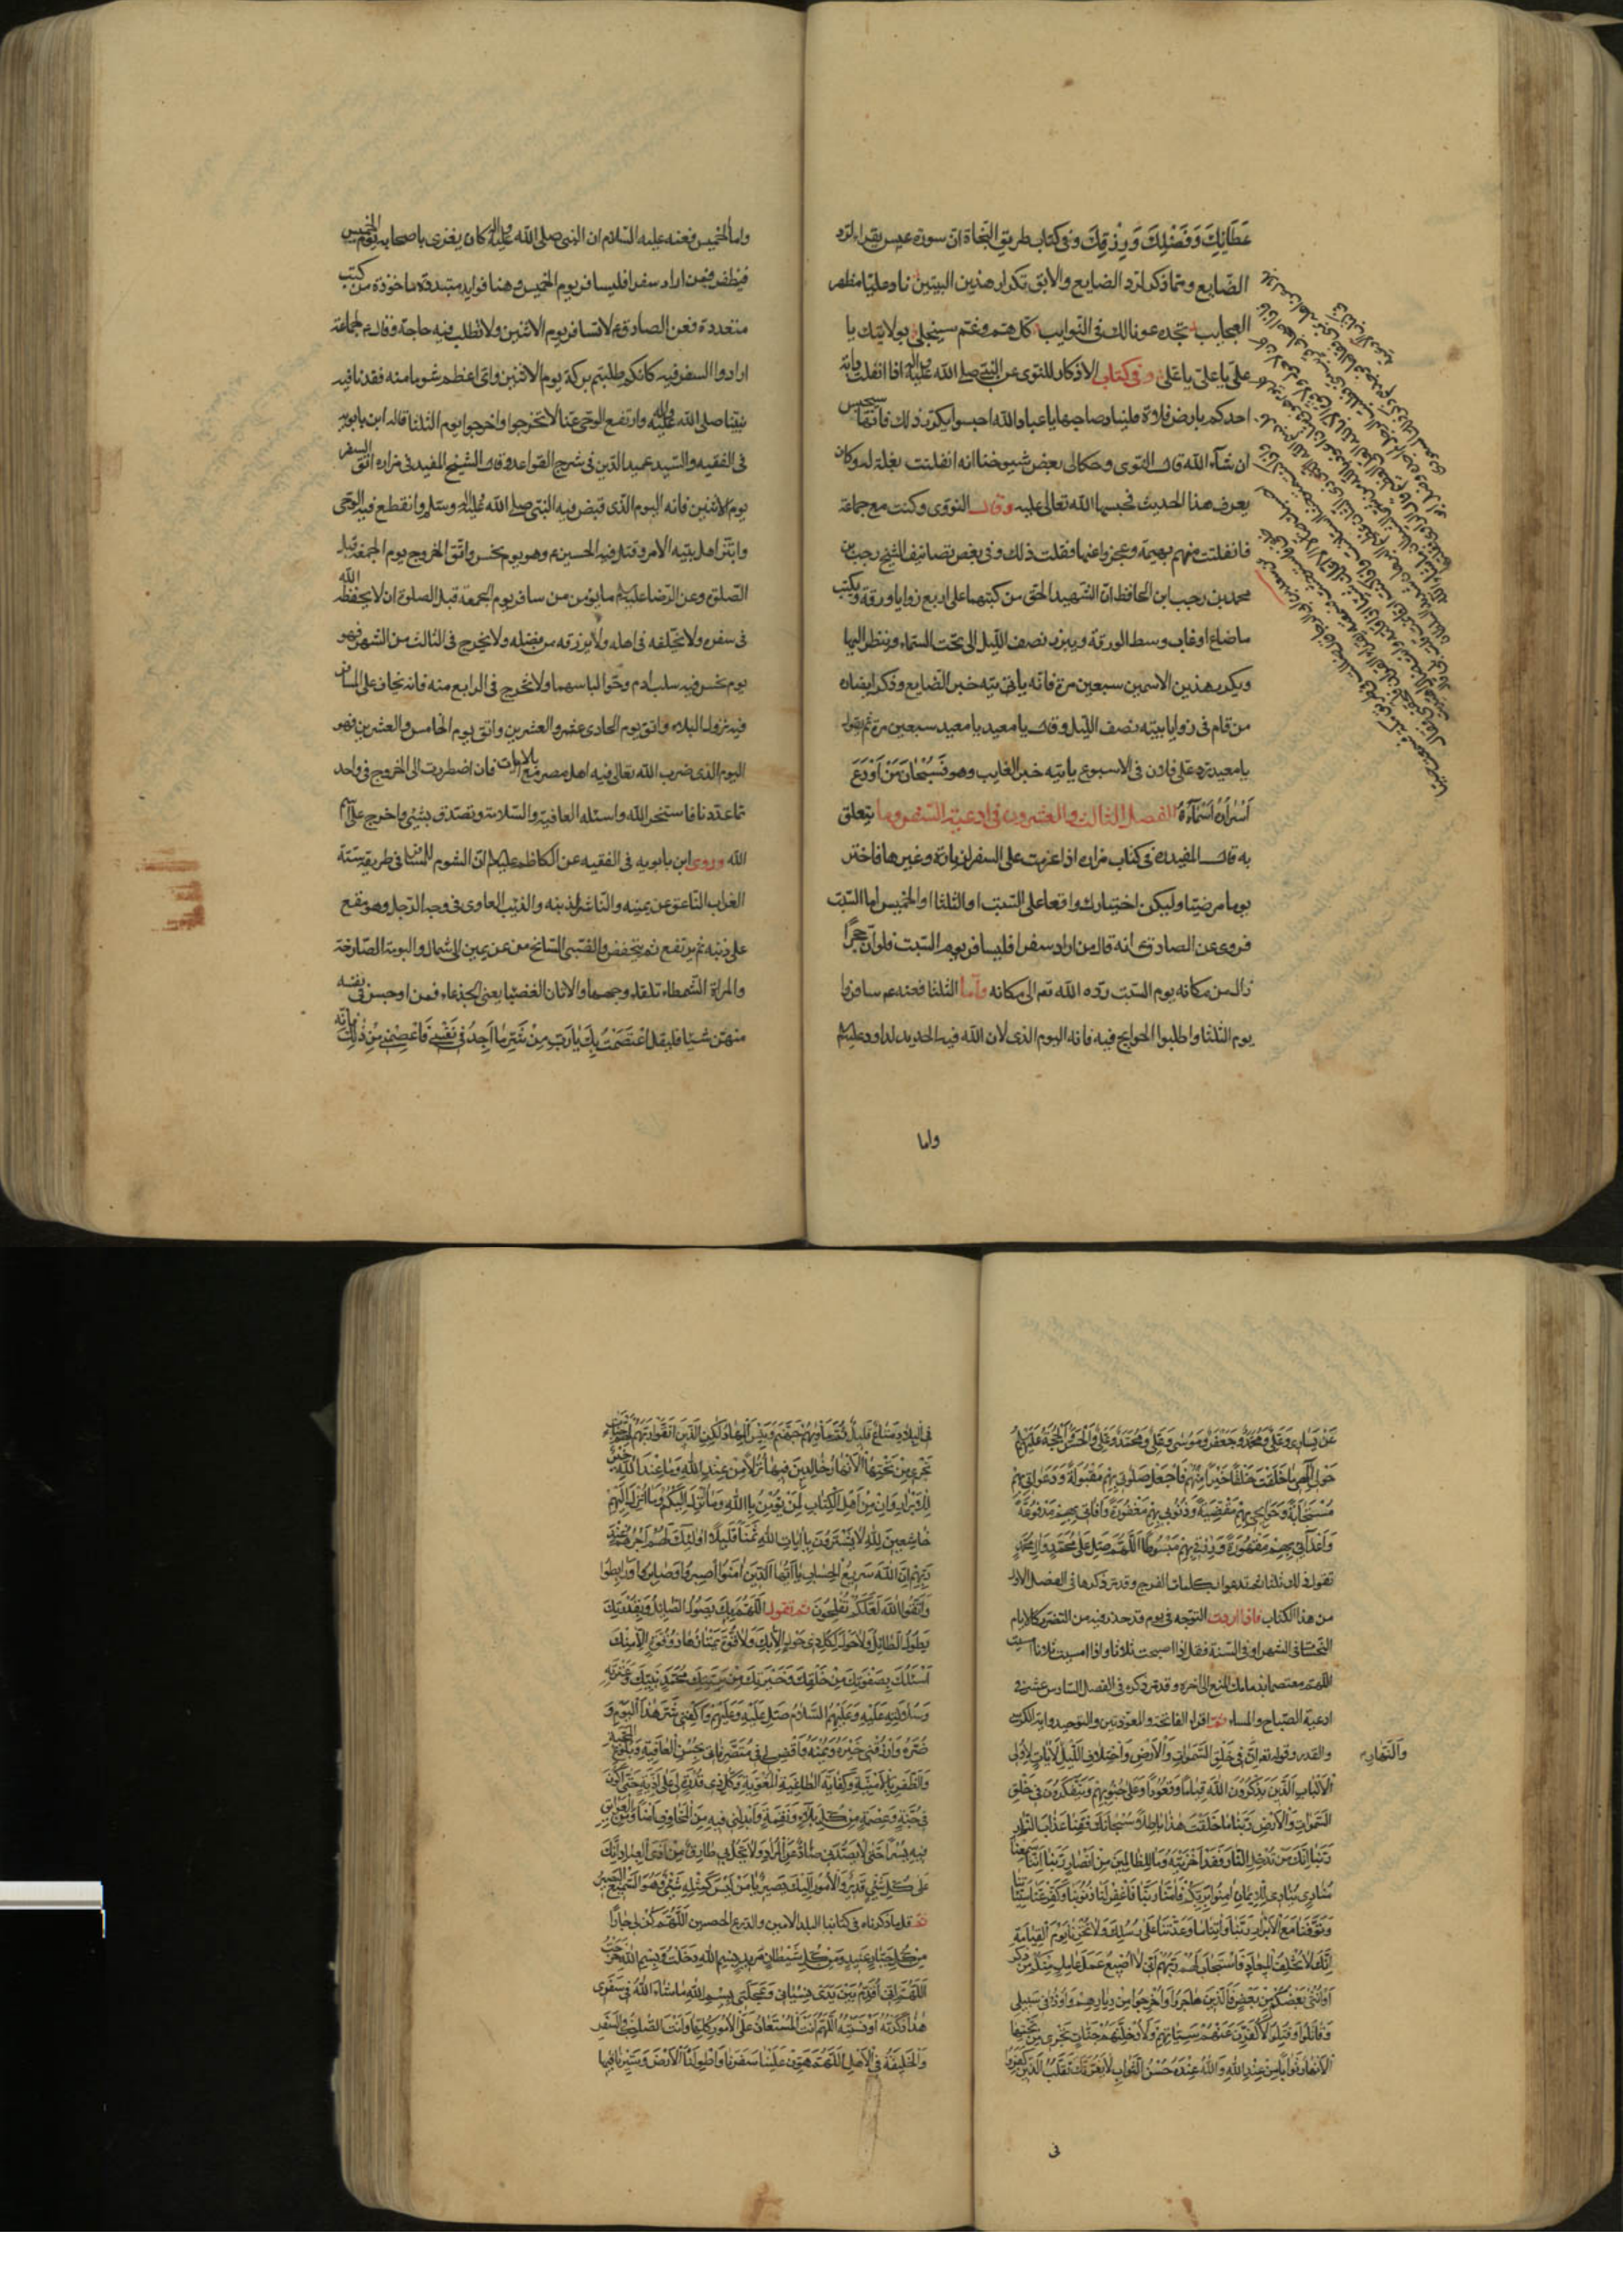 عَطَائِكَ وَفَضْلِكَ وَرِزْقِكَ وفى كتاب طريق النجاة ان سورة عبس يقراء لرد
الضايع ومما ذكر لرد الضايع والابق تكرار هذين البيتين ناد عليا مظهر
العجايب تجده عونا لك فى النوايب كل هم وغم سينجلى بولايتك يا
على يا على يا على وفى كتاب الاذكار للنووى عن النبى صلى الله عليه واله اذا انفلت دابة
احدكم بارض فلاة فليناد صاحبها يا عباد الله احبسوا يكرر ذلك فانها ستحبس
ان شآء الله قال النووى وحكا لى بعض شيوخنا انه انفلتت بغلة له وكان
يعرف هذا الحديث فحبسها الله تعالى عليه وقال النووى وكنت مع جماعة
فانفلتت منهم بهيمة وعجزوا عنها فقلت ذلك وفى بعض تصانيف الشيخ رجب بن
محمد بن رجب ابن الحافظ ان الشهيد الحق من كتبهما على اربع زوايا ورقة ويكتب
ما ضاع او غاب وسط الورقة ويبرز نصف الليل الى تحت السماء وينظر اليها
ويكرر هذين الاسمين سبعين مرة فانه ياتيه خبر الضايع وذكر ايضا ان
من قام فى زوايا بيته نصف الليل وقال يا معيد يا معيد سبعين مرة ثم يقول
يا معيد رد على فلان فى الاسبوع ياتيه خبر الغايب وهو فَسُبْحَانَ مَنْ اَوْدَعَ
اَسْرَارَهُ اَسْمَآءَهُ الفصل الثالث والعشرون فى ادعية السفر وما يتعلق
به قال المفيد ره فى كتاب مزاره اذا عزمت على السفر لزيارة وغيرها فاختر
يوما مرضيا وليكن اختيارك واقعا على السبت او الثلثا او الخميس اما السبت
فروى عن الصادق ع انه قال من اراد سفرا فليسافر يوم السبت فلو ان حجرا
زال من مكانه يوم السبت رده الله تعالى مكانه واما الثلثا فعنه ع سافروا
يوم الثلثا واطلبوا الحوايج فيه فانه اليوم الذى لان الله فيه الحديد لداود عليه السلام
واما
واما الخميس فعنه عليه السلام ان النبى صلى الله عليه واله كان يغزى باصحابه يوم الخميس
فيظفر فمن اراد سفرا فليسافر يوم الخميس وهنا فوايد متبددة ماخوذة من كتب
متعددة فعن الصادق ع لا تسافر يوم الاثنين ولا تطلب فيه حاجة وقال ع لجماعة
ارادوا السفر فيه كانكم طلبتم بركة يوم الاثنين واى اعظم شوما منه فقدنا فيه
نبينا صلى الله عليه واله وارتفع الوحى عنا لا تخرجوا واخرجوا يوم الثلثا قاله ابن بابويه
فى الفقيه والسيد عميد الدين فى شرح القواعد وقال الشيخ المفيد فى مزاره اتق السفر
يوم الاثنين فانه اليوم الذى قبض فيه النبى صلى الله عليه واله وسلم وانقطع فيه الوحى
وابتز اهل بيته الامر وقتل فيه الحسين ع وهو يوم نحس واتق الخروج يوم الجمعة قبل
الصلوة وعن الرضا عليه السلام ما يؤمن من سافر يوم الجمعة قبل الصلوة ان لا يحفظه الله
فى سفره ولا يخلفه فى اهله ولا يرزقه من فضله ولا يخرج فى الثالث من الشهر فهو
يوم نحس فيه سلب ادم وحوا لباسهما ولا تخرج فى الرابع منه فانه يخاف على المسافر
فيه نزول البلاء واتق يوم الحادى عشر والعشرين واتق يوم الخامس والعشرين فهو
اليوم الذى ضرب الله تعالى فيه اهل مصر مع بالايات فان اضطررت الى الخروج فى واحد
مما عددنا فاستخر الله واسئله العافية والسلامة وتصدق بشيئ واخرج على اسم
الله وروى ابن بابويه فى الفقيه عن الكاظم عليه السلام ان الشوم للمسافر فى طريقه ستة
الغراب الناعق عن يمينه والناشر لذنبه والذيب العاوى فى وجه الرجل وهو مقع
على ذنبه ثم يرتفع ثم ينخفض والظبى السانح من عن يمين الى شمال والبومة الصارخة
والمراة الشمطاء تلقاء وجهها والاتان الغضبا يعنى الجذعاء فمن اوجس فى نفسه
منهن شيئا فليقل اعْتَصَمْتُ بِكَ يَارَبِّ مِنْ شَرِّ مَا اَجِدُ فِى نَفْسِى فَاعْصِمْنِى مِنْ ذٰلِكَ فانه
عَنْ يَسَارِى وَعَلِىٌّ وَمُحَمَّدٌ وَجَعْفَرٌ وَمُوسٰى وَعَلِىٌّ وَمُحَمَّدٌ وَعَلِىٌّ وَالْحَسَنُ وَالْحُجَّةُ عَلَيْهِمُ السَّلَامُ
حَوْلِى اِلٰهِى مَا خَلَقْتَ خَلْقًا خَيْرًا مِنْهُمْ فَاجْعَلْ صَلٰوتِى بِهِمْ مَقْبُولَةً وَدَعَوَاتِى بِهِمْ
مُسْتَجَابَةً وَحَوَائِجِى بِهِمْ مَقْضِيَّةً وَذُنُوبِى بِهِمْ مَغْفُورَةً وَاٰفَاتِى بِهِمْ مَدْفُوعَةً
وَاَعْدَآئِى بِهِمْ مَقْهُورَةً وَرِزْقِى بِهِمْ مَبْسُوطًا اَللّٰهُمَّ صَلِّ عَلٰى مُحَمَّدٍ وَاٰلِ مُحَمَّدٍ
تقول ذلك ثلثا ثم تدعوا بكلمات الفرج وقد مر ذكرها فى الفصل الاول
من هذا الكتاب فاذا اردت التوجه فى يوم قد حذر فيه من التصرف كالايام
النحسات فى الشهر او فى السنة فقل اذا اصبحت ثلاثا واذا امسيت ثلاثا امسيت
اللهم معتصما بذمامك المنيع الى اخره وقد مر ذكره فى الفصل السادس عشر فى
ادعية الصباح والمساء ثم اقراء الفاتحة والمعوذتين والتوحيد واية الكرسى
والقدر وقوله تعالى اِنَّ فِى خَلْقِ السَّمٰوَاتِ وَالْاَرْضِ وَاخْتِلَافِ اللَّيْلِ لَاٰيَاتٍ لِاُولِى
والنهار
الْاَلْبَابِ الَّذِينَ يَذْكُرُونَ اللّٰهَ قِيَامًا وَقُعُودًا وَعَلٰى جُنُوبِهِمْ وَيَتَفَكَّرُونَ فِى خَلْقِ
السَّمٰوَاتِ وَالْاَرْضِ رَبَّنَا مَا خَلَقْتَ هٰذَا بَاطِلًا سُبْحَانَكَ فَقِنَا عَذَابَ النَّارِ
رَبَّنَا اِنَّكَ مَنْ تُدْخِلِ النَّارَ فَقَدْ اَخْزَيْتَهُ وَمَا لِلظَّالِمِينَ مِنْ اَنْصَارٍ رَبَّنَا اِنَّنَا سَمِعْنَا
مُنَادِيًا يُنَادِى لِلْاِيمَانِ اَنْ اٰمِنُوا بِرَبِّكُمْ فَاٰمَنَّا رَبَّنَا فَاغْفِرْ لَنَا ذُنُوبَنَا وَكَفِّرْ عَنَّا سَيِّئَاتِنَا
وَتَوَفَّنَا مَعَ الْاَبْرَارِ رَبَّنَا وَاٰتِنَا مَا وَعَدْتَنَا عَلٰى رُسُلِكَ وَلَا تُخْزِنَا يَوْمَ الْقِيٰمَةِ
اِنَّكَ لَا تُخْلِفُ الْمِيعَادَ فَاسْتَجَابَ لَهُمْ رَبُّهُمْ اَنِّى لَا اُضِيعُ عَمَلَ عَامِلٍ مِنْكُمْ مِنْ ذَكَرٍ
اَوْ اُنْثٰى بَعْضُكُمْ مِنْ بَعْضٍ فَالَّذِينَ هَاجَرُوا وَاُخْرِجُوا مِنْ دِيَارِهِمْ وَاُوذُوا فِى سَبِيلِى
وَقَاتَلُوا وَقُتِلُوا لَاُكَفِّرَنَّ عَنْهُمْ سَيِّئَاتِهِمْ وَلَاُدْخِلَنَّهُمْ جَنَّاتٍ تَجْرِى مِنْ تَحْتِهَا
الْاَنْهَارُ ثَوَابًا مِنْ عِنْدِ اللّٰهِ وَاللّٰهُ عِنْدَهُ حُسْنُ الثَّوَابِ لَا يَغُرَّنَّكَ تَقَلُّبُ الَّذِينَ كَفَرُوا
فى
فِى الْبِلَادِ مَتَاعٌ قَلِيلٌ ثُمَّ مَاْوٰيهُمْ جَهَنَّمُ وَبِئْسَ الْمِهَادُ لٰكِنِ الَّذِينَ اتَّقَوْا رَبَّهُمْ لَهُمْ جَنَّاتٌ
تَجْرِى مِنْ تَحْتِهَا الْاَنْهَارُ خَالِدِينَ فِيهَا نُزُلًا مِنْ عِنْدِ اللّٰهِ وَمَا عِنْدَ اللّٰهِ خَيْرٌ
لِلْاَبْرَارِ وَاِنَّ مِنْ اَهْلِ الْكِتَابِ لَمَنْ يُؤْمِنُ بِاللّٰهِ وَمَا اُنْزِلَ اِلَيْكُمْ وَمَا اُنْزِلَ اِلَيْهِمْ
خَاشِعِينَ لِلّٰهِ لَا يَشْتَرُونَ بِاٰيَاتِ اللّٰهِ ثَمَنًا قَلِيلًا اُولٰئِكَ لَهُمْ اَجْرُهُمْ عِنْدَ
رَبِّهِمْ اِنَّ اللّٰهَ سَرِيعُ الْحِسَابِ يَا اَيُّهَا الَّذِينَ اٰمَنُوا اصْبِرُوا وَصَابِرُوا وَرَابِطُوا
وَاتَّقُوا اللّٰهَ لَعَلَّكُمْ تُفْلِحُونَ ثم تقول اَللّٰهُمَّ بِكَ يَصُولُ الصَّائِلُ وَبِقُدْرَتِكَ
يَطُولُ الطَّائِلُ وَلَا حَوْلَ لِكُلِّ ذِى حَوْلٍ اِلَّا بِكَ وَلَا قُوَّةَ يَمْتَازُهَا ذُو قُوَّةٍ اِلَّا مِنْكَ
اَسْئَلُكَ بِصَفْوَتِكَ مِنْ خَلْقِكَ وَخِيَرَتِكَ مِنْ بَرِيَّتِكَ مُحَمَّدٍ نَبِيِّكَ وَعِتْرَتِهِ
وَسُلَالَتِهِ عَلَيْهِ وَعَلَيْهِمُ السَّلَامُ صَلِّ عَلَيْهِ وَعَلَيْهِمْ وَاكْفِنِى شَرَّ هٰذَا الْيَوْمِ وَ
ضُرَّهُ وَارْزُقْنِى خَيْرَهُ وَيُمْنَهُ وَاقْضِ لِى فِى مُتَصَرَّفَاتِى بِحُسْنِ الْعَافِيَةِ وَبُلُوغِ الْمَحَبَّةِ
وَالظَّفَرِ بِالْاُمْنِيَّةِ وَكِفَايَةِ الطَّاغِيَةِ الْمُغْوِيَةِ وَكُلِّ ذِى قُدْرَةٍ لِى عَلٰى اَذِيَّةٍ حَتّٰى اَكُونَ
فِى جُنَّةٍ وَعِصْمَةٍ مِنْ كُلِّ بَلَآءٍ وَنَقِمَةٍ وَاَبْدِلْنِى فِيهِ مِنَ الْمَخَاوِفِ اَمْنًا وَمِنَ الْعَوَائِقِ
فِيهِ يُسْرًا حَتّٰى لَا يَصُدَّنِى صَادٌّ عَنِ الْمُرَادِ وَلَا يَحُلَّ بِى طَارِقٌ مِنْ اَذَى الْعِبَادِ اِنَّكَ
عَلٰى كُلِّ شَىْءٍ قَدِيرٌ وَالْاُمُورُ اِلَيْكَ تَصِيرُ يَا مَنْ لَيْسَ كَمِثْلِهِ شَىْءٌ وَهُوَ السَّمِيعُ الْبَصِيرُ
ثم قل ما ذكرناه فى كتابنا البلد الامين والدرع الحصين اَللّٰهُمَّ كُنْ لِى جَارًا
مِنْ كُلِّ جَبَّارٍ عَنِيدٍ وَمِنْ كُلِّ شَيْطَانٍ مَرِيدٍ بِسْمِ اللّٰهِ دَخَلْتُ وَبِسْمِ اللّٰهِ خَرَجْتُ
اَللّٰهُمَّ اِنِّى اُقَدِّمُ بَيْنَ يَدَىْ نِسْيَانِى وَعَجَلَتِى بِسْمِ اللّٰهِ مَا شَاءَ اللّٰهُ فِى سَفَرِى
هٰذَا ذَكَرْتُهُ اَوْ نَسِيتُهُ اَللّٰهُمَّ اَنْتَ الْمُسْتَعَانُ عَلَى الْاُمُورِ كُلِّهَا وَاَنْتَ الصَّاحِبُ فِى السَّفَرِ
وَالْخَلِيفَةُ فِى الْاَهْلِ اَللّٰهُمَّ هَوِّنْ عَلَيْنَا سَفَرَنَا وَاطْوِ لَنَا الْاَرْضَ وَسَيِّرْنَا فِيهَا